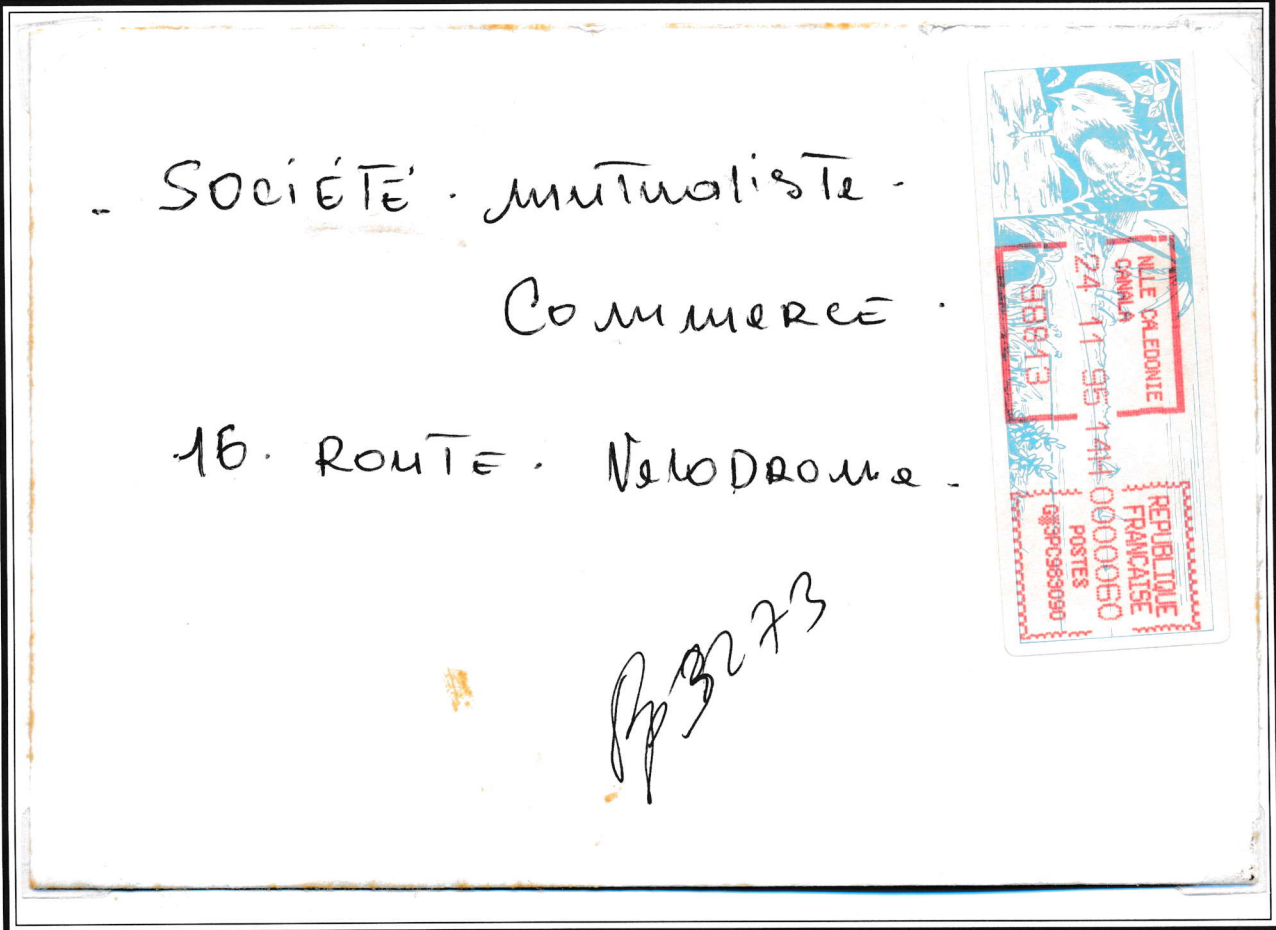 - SOCIÉTÉ. mutualiste.
COMMERCE.
16. ROUTE. VeloDROMe.
Bp 3273
NLLE CALEDONIE
CANALA
24 11 95 14H 0000060
98813
REPUBLIQUE
FRANCAISE
POSTES